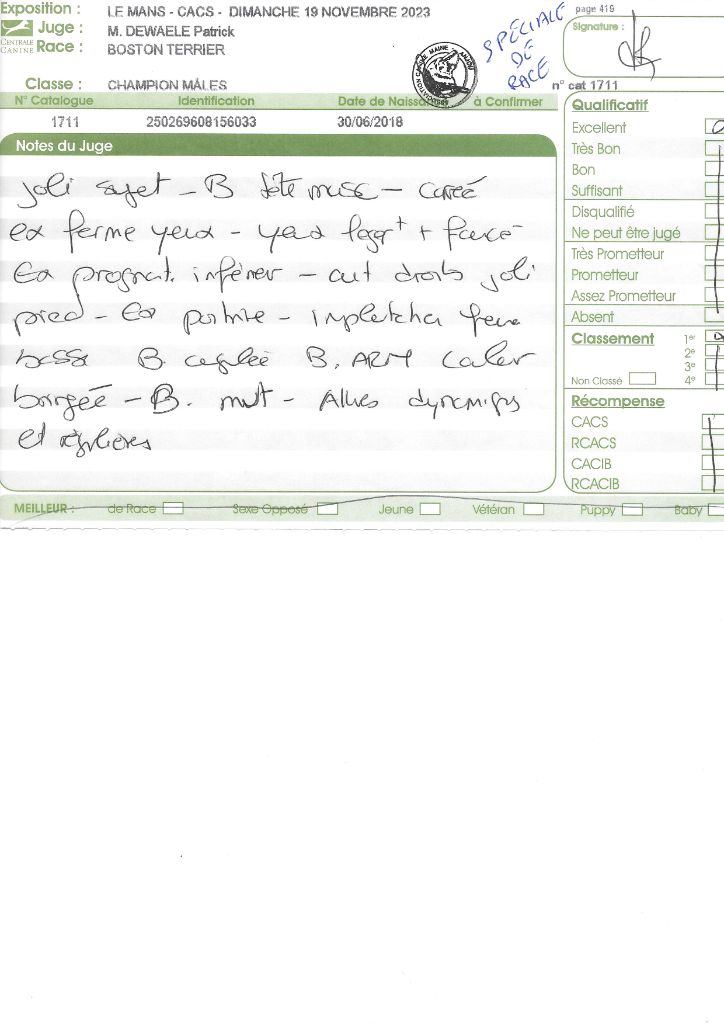 Exposition : LE MANS - CACS - DIMANCHE 19 NOVEMBRE 2023
Juge : M. DEWAELE Patrick
CENTRALE CANINE
Race : BOSTON TERRIER
Classe : CHAMPION MÂLES
SPÉCIALE
DE
RACE
page 419
Signature :
n° cat 1711
N° Catalogue Identification Date de Naissance à Confirmer
1711 250269608156033 30/06/2018
Notes du Juge
Joli sujet - B tête musc - carré
ex forme yeux - yeux + foncé
Ex prognat. inférieur - ant droits joli
pied - Ex poitrine -
basse B. angulée B. ARM color
bringée - B. mvt - Allures dynamiques
et régulières
Qualificatif
Excellent
Très Bon
Bon
Suffisant
Disqualifié
Ne peut être jugé
Très Prometteur
Prometteur
Assez Prometteur
Absent
Classement 1er
2e
3e
Non Classé 4e
Récompense
CACS
RCACS
CACIB
RCACIB
MEILLEUR : de Race Sexe Opposé Jeune Vétéran Puppy Baby